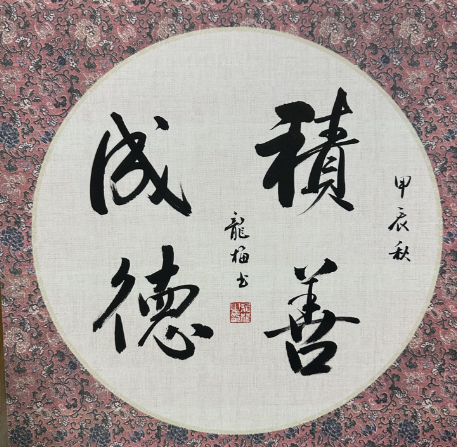 甲辰秋
積善
成德
龍梅书